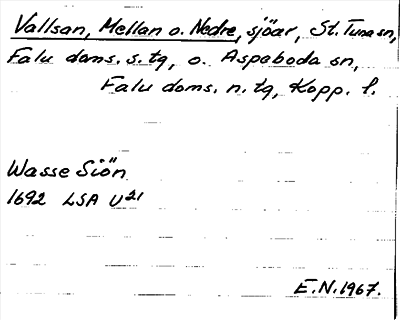 Vallsan, Mellan o. Nedre, sjöar, St. Tuna sn,
Falu doms. s. tg, o. Aspeboda sn,
Falu doms. n. tg, Kopp. l.
Wasse Siön
1692 LSA U21
E.N.1967.